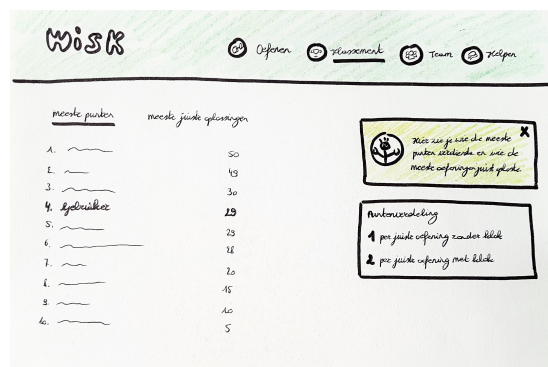 WiSK
Oefenen Klassement Team Helpen
meeste punten meeste juiste oplossingen
1. 50
2. 49
3. 30
4. Gebruiker 29
5. 29
6. 28
7. 20
8. 15
9. 10
10. 5
X
Hier zie je wie de meeste
punten verdiende en wie de
meeste oefeningen juist oploste.
Puntenverdeling
1 per juiste oefening zonder klok
2 per juiste oefening met klok